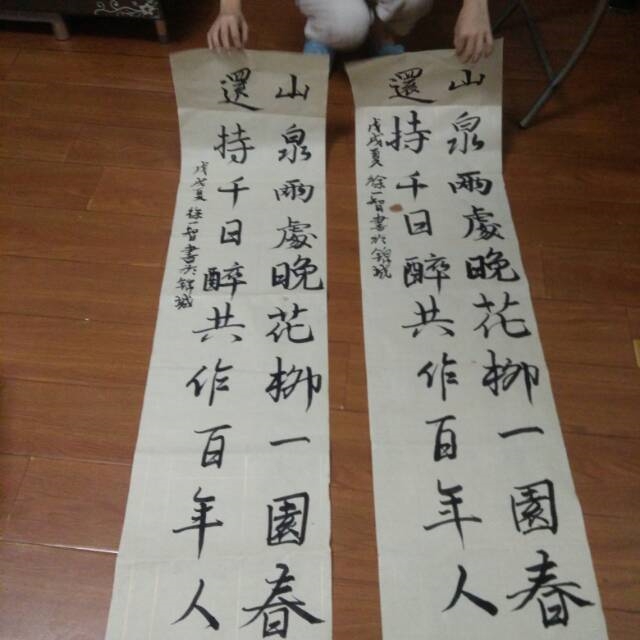 山泉兩處晚花柳一園春
還持千日醉共作百年人
戊戌夏徐一智書於錦城
山泉兩處晚花柳一園春
還持千日醉共作百年人
戊戌夏徐一智書於錦城